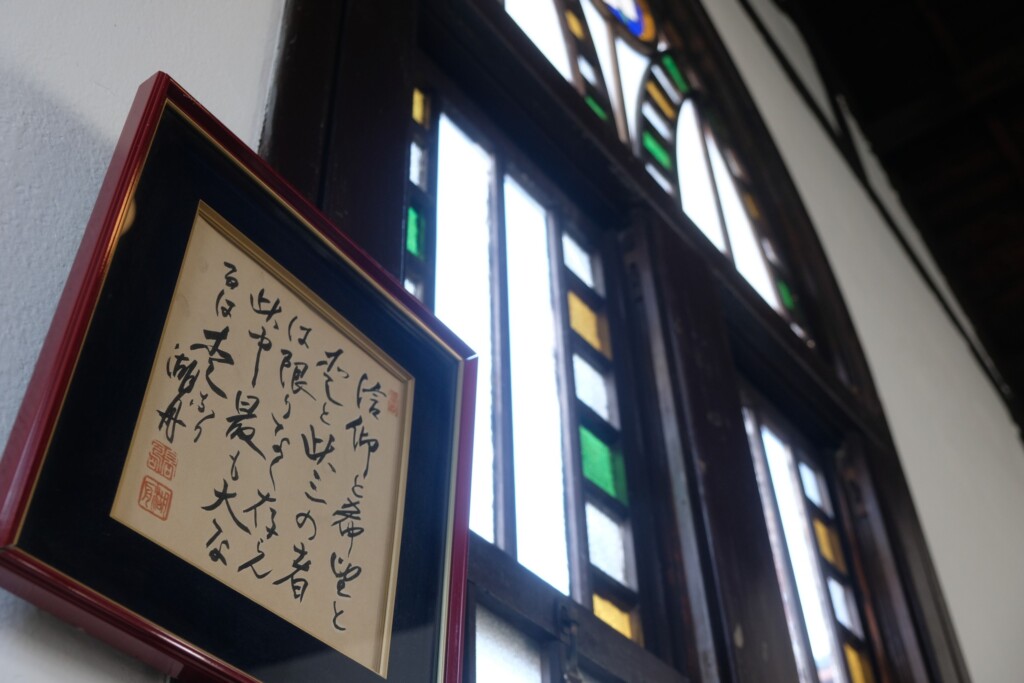 信仰と希望と
愛と此三の者
は限りなく存らん
此中最も大な
るは愛なり